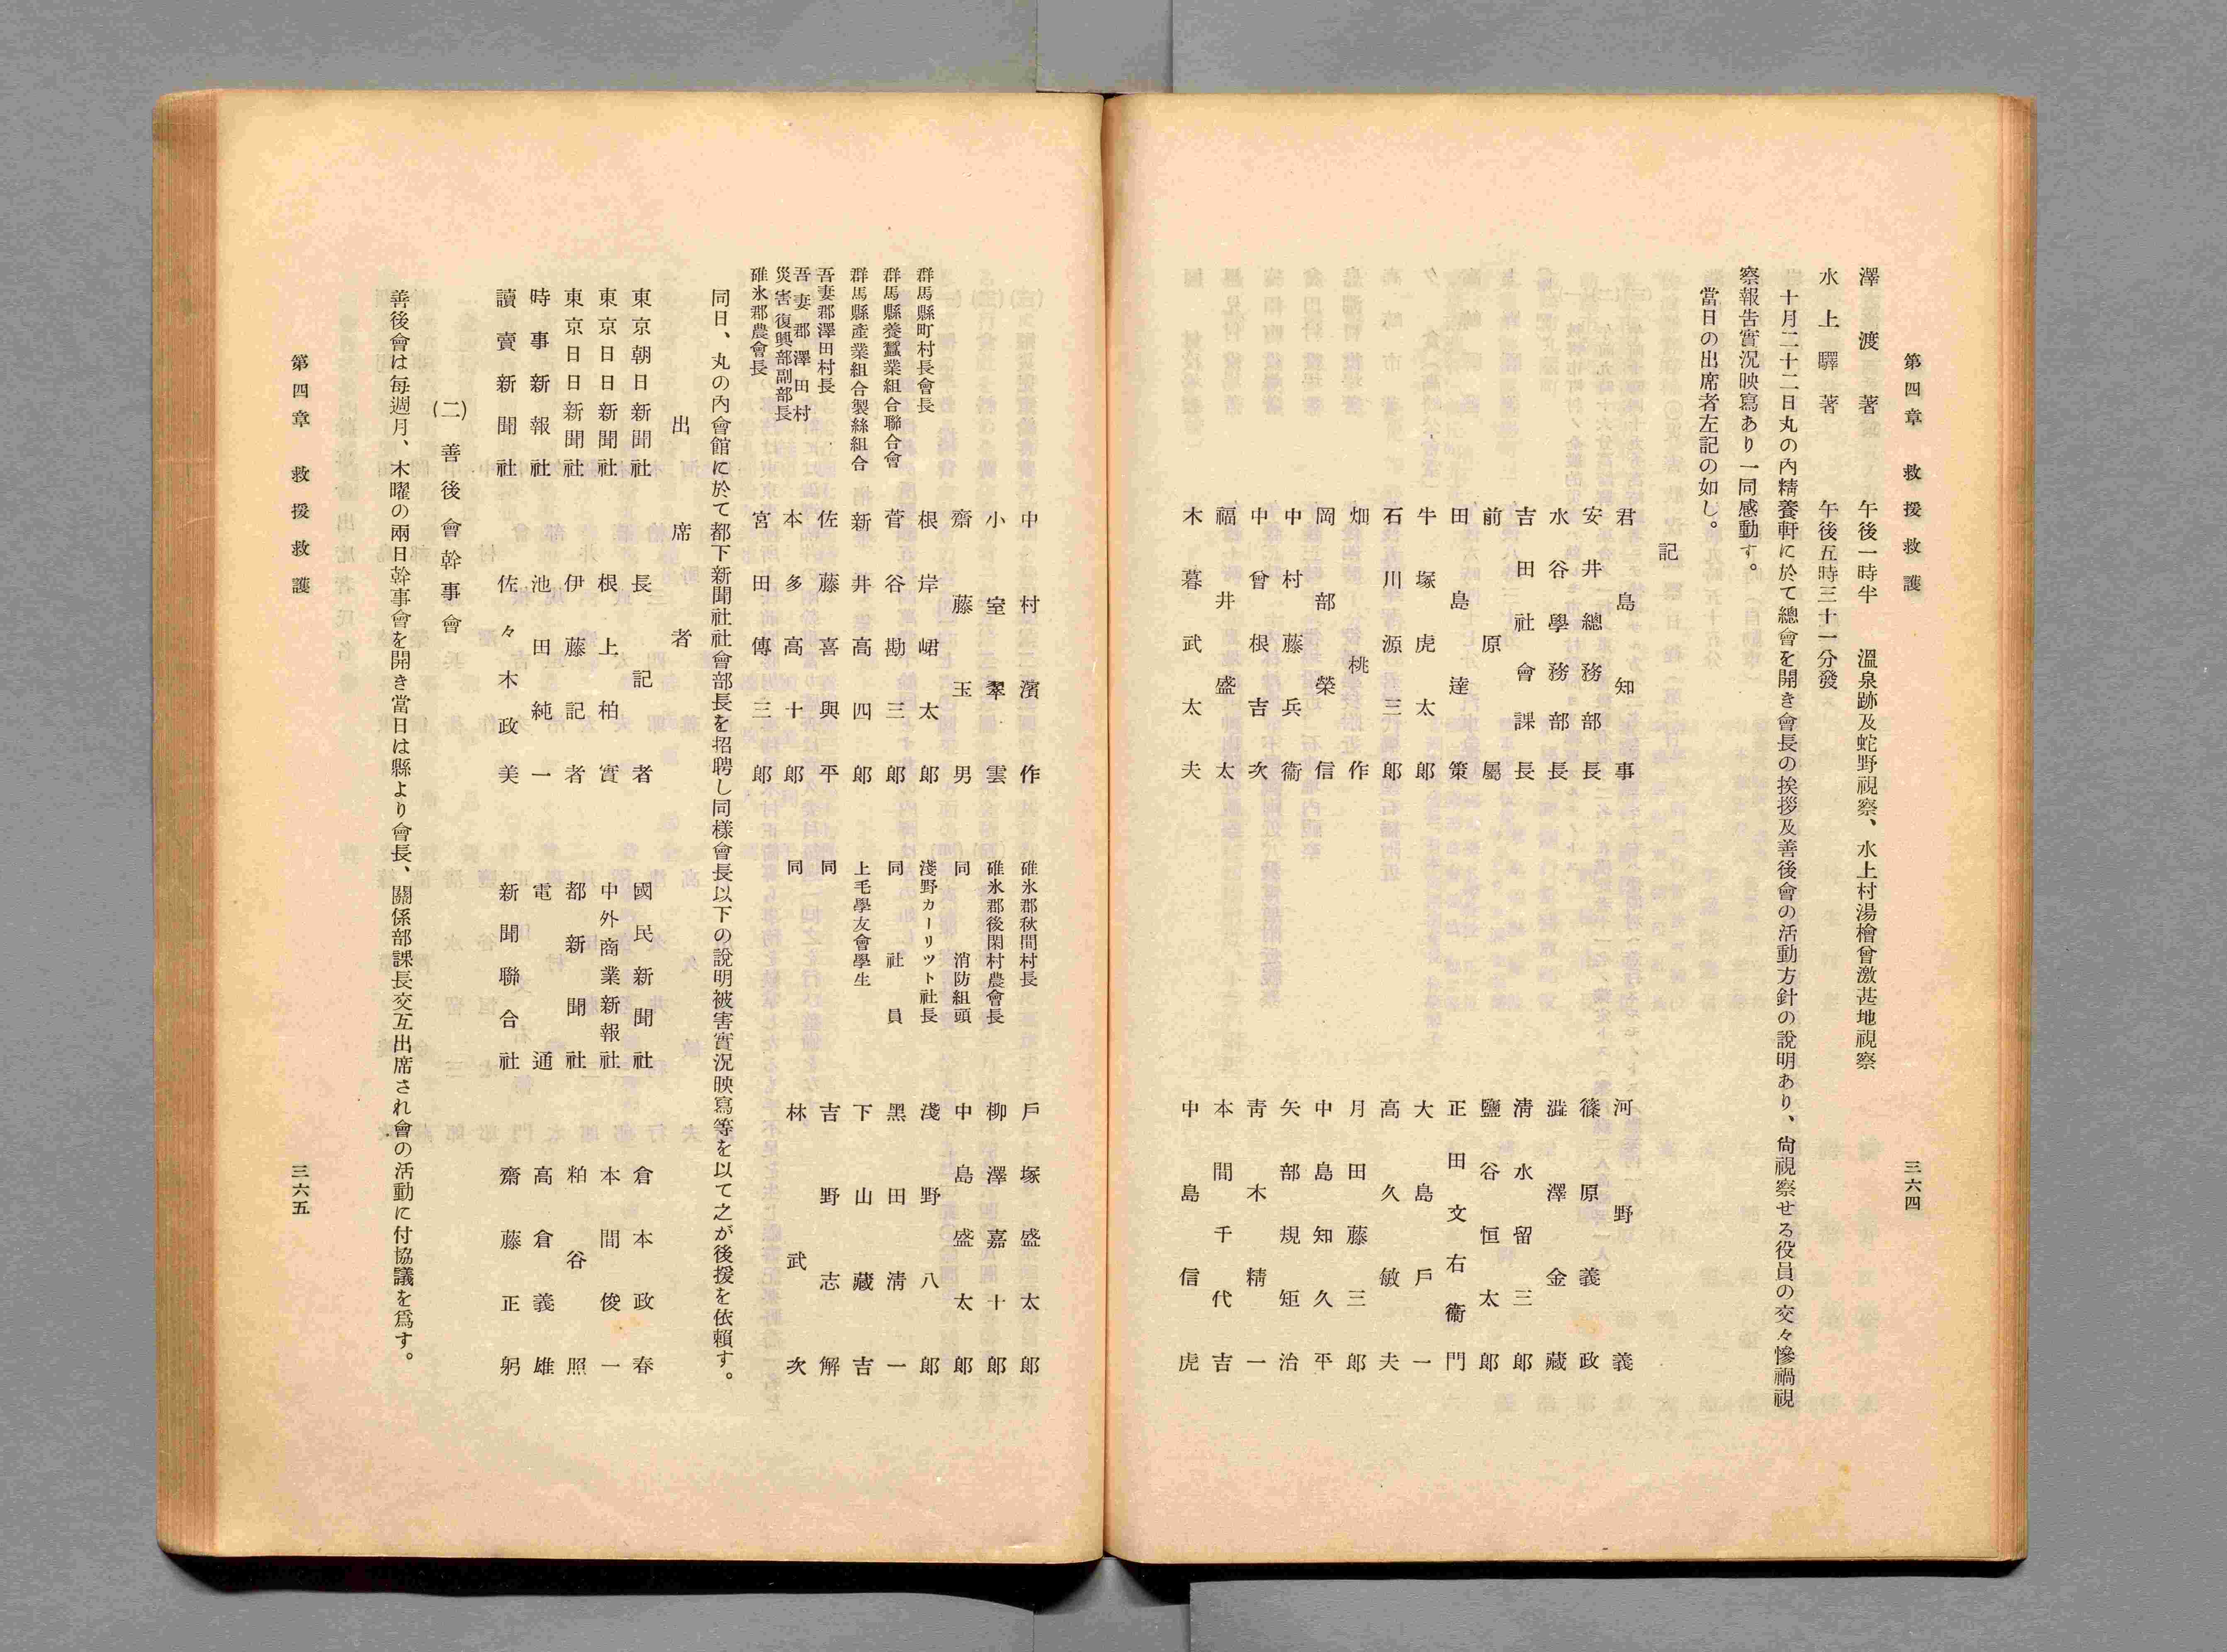 第四章 救援救護
三六四
澤渡著 午後一時半 溫泉跡及蛇野視察、水上村湯檜曾激甚地視察
水上驛著 午後五時三十一分發
十月二十二日丸の內精養軒に於て總會を開き會長の挨拶及善後會の活動方針の說明あり、尙視察せる役員の交々慘禍視
察報告實況映寫あり一同感動す。
當日の出席者左記の如し。
記
君島知事 河野義
安井總務部長 篠原義政
水谷學務部長 澁澤金藏
吉田社會課長 淸水留三郎
前原屬 鹽谷恒太郎
田島達策 正田文右衞門
牛塚虎太郎 大島戶一
石川源三郎 高久敏夫
畑桃作 月田藤三郎
岡部榮信 中島知久平
中村藤兵衞 矢部規矩治
中曾根吉次 靑木精一
福井盛太 本間千代吉
木暮武太夫 中島信虎
中村濱作 碓氷郡秋間村長 戶塚盛太郎
小室翠雲 碓氷郡後閑村農會長 柳澤嘉十郎
齋藤玉男 同 消防組頭 中島盛太郎
群馬縣町村長會長 根岸峮太郎 淺野カーリツト社長 淺野八郎
群馬縣養蠶業組合聯合會 菅谷勘三郎 同 社員 黑田淸一
群馬縣產業組合製絲組合 新井高四郎 上毛學友會學生 下山藏吉
吾妻郡澤田村長 佐藤喜與平 同 吉野志解
吾妻郡澤田村
災害復興部副部長 本多高十郎 同 林武次
碓氷郡農會長 宮田傳三郎
同日、丸の內會館に於て都下新聞社社會部長を招聘し同樣會長以下の說明被害實況映寫等を以て之が後援を依賴す。
出席者
東京朝日新聞社 長記者 國民新聞社 倉本政春
東京日日新聞社 根上柏實 中外商業新報社 本間俊一
東京日日新聞社 伊藤記者 都新聞社 粕谷照
時事新報社 池田純一 電通 高倉義雄
讀賣新聞社 佐々木政美 新聞聯合社 齋藤正躬
(二) 善後會幹事會
善後會は每週月、木曜の兩日幹事會を開き當日は縣より會長、關係部課長交互出席され會の活動に付協議を爲す。
第四章 救援救護
三六五